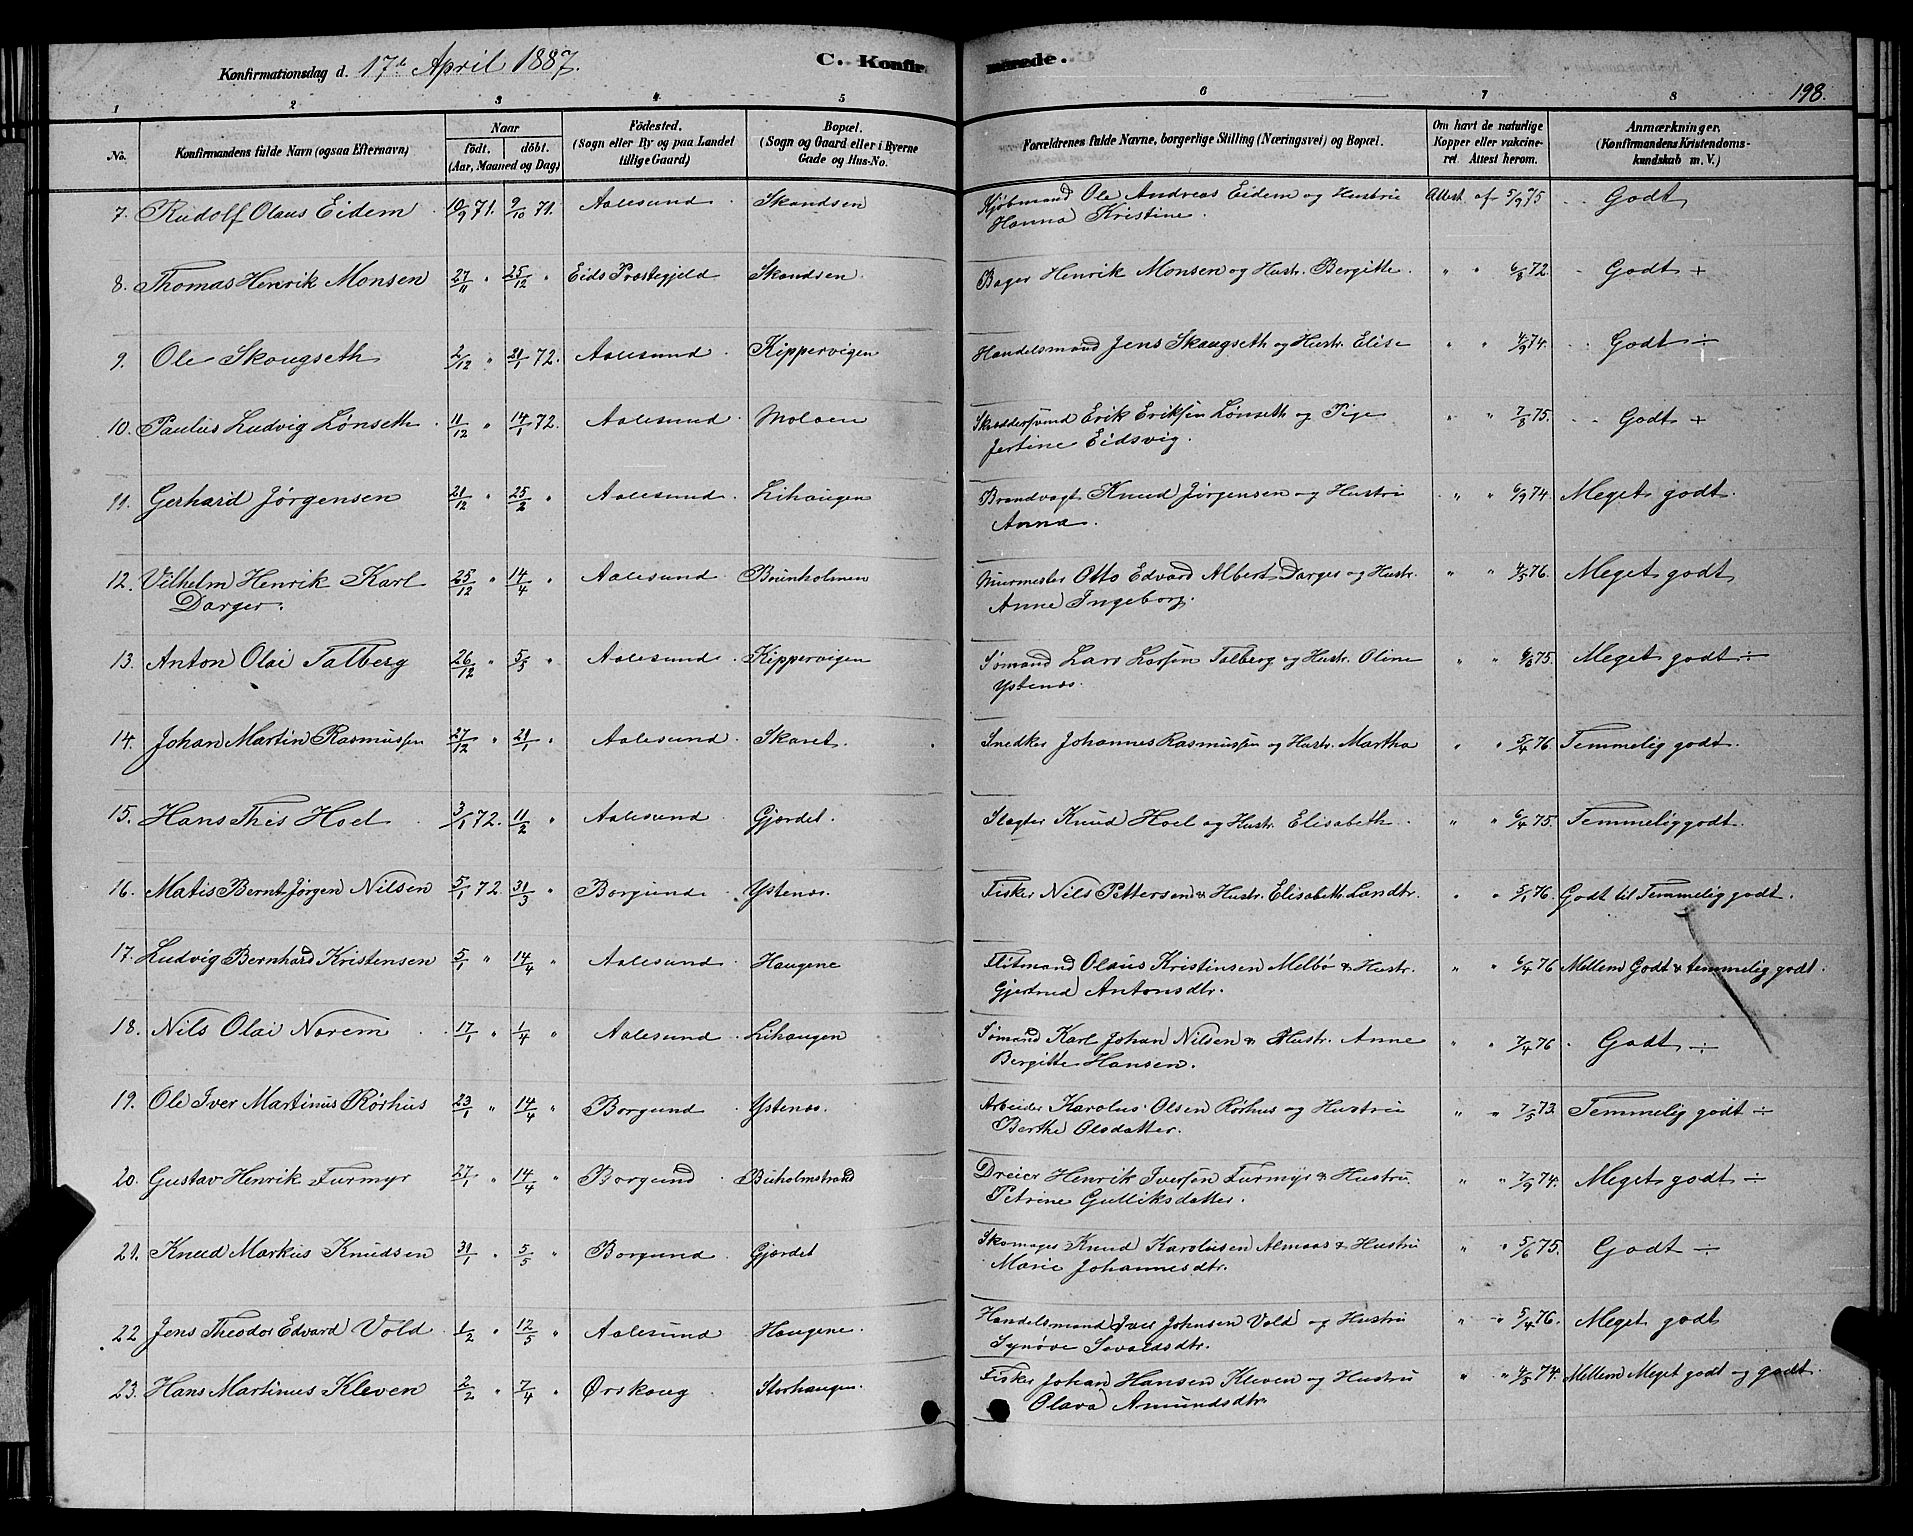 Konfirmationsdag d. 17de April 1887. C. Konfirmerede.
198.
1 2 3 4 5 6 7 8
No. Konfirmandens fulde Navn (ogsaa Efternavn) Naar födt. döbt. (Aar, Maaned og Dag) Födested. (Sogn eller By og paa Landet tillige Gaard) Bopæl. (Sogn og Gaard eller i Byerne Gade og Hus-No. Forældrenes fulde Navne, borgerlige Stilling (Næringsvei) og Bopæl. Om havt de naturlige Kopper eller vakcineret. Attest herom. Anmærkninger. (Konfirmandens Kristendomskundskab m. V.)
7. Rudolf Olaus Eidem 10/9 71. 9/10 71. Aalesund Skandsen Kjøbmand Ole Andreas Eidem og Hustru Attest af 5/9 75 Godt
Hanna Kristine.
8. Thomas Henrik Monsen 27/11 " 25/12 " Eids Præstegjeld Skandsen Bager Henrik Monsen og Hustr. Bergitte. " " 6/8 72 Godt +
9. Ole Skougseth 2/12 " 21/1 72. Aalesund Kippervigen Handelsmand Jens Skaugseth og Hustr. Elise " " 4/9 74. Godt ÷
10. Paulus Ludvig Lønseth 11/12 " 14/1 72. Aalesund Moloen Skræddersvend Erik Eriksen Lønseth og Pige " " 7/8 75. Godt +
Jertine Eidsvig.
11. Gerhard Jørgensen 21/12 " 25/2 " Aalesund Lihaugen Brandvagt Knud Jørgensen og Hustru " " 6/9 74. Meget godt.
Anna.
12. Vilhelm Henrik Karl 25/12 " 14/4 " Aalesund Bunholmen Murmester Otto Edvard Albert Darger og Hustr. " " 4/5 76. Meget godt
Darger. Anne Ingeborg.
13. Anton Olai Talberg 26/12 " 5/5 " Aalesund Kippervigen Sømand Lars Larsen Talberg og Hustr. Oline " " 6/6 75. Meget godt ÷
Ystenæs.
14. Johan Martin Rasmussen 27/12 " 21/1 " Aalesund Skaret. Snedker Johannes Rasmussen og Hustr. Martha " " 5/4 76 Temmelig godt.
15. Hans This Hoel 3/1 72. 11/2 " Aalesund Gjærdet. Slagter Knud Hoel og Hustr. Elisabeth " " 6/4 75. Temmelig godt.
16. Matis Bernt Jørgen Nilsen 5/1 72 31/3 " Borgund Ystenæs. Fisker Nils Pettersen & Hustr. Elisabeth Larsdtr. " " 5/1 76. Godt til Temmelig godt.
17. Ludvig Bernhard Kristensen 5/1 " 14/4 " Aalesund Haugene Flitmand Olaus Kristinsen Melbø & Hustr. " " 6/4 76 Mellem Godt & temmelig godt.
Gjertrud Antonsdtr.
18. Nils Olai Norem 17/1 " 1/4 " Aalesund Lihaugen Sømand Karl Johan Nilsen & Hustr. Anne " " 7/4 76 Godt ÷
Bergitte Hansen.
19. Ole Iver Martinus Rørhus 23/1 " 14/4 " Borgund Ystenæs. Arbeider Karolus Olsen Rørhus og Hustru " " 7/5 73. Temmelig godt ÷
Berthe Olsdatter.
20. Gustav Henrik Furmyr 27/1 " 14/4 " Borgund Buholmstrand Dreier Henrik Iversen Furmyr & Hustru. " " 7/9 74. Meget godt ÷
Petrine Gulliksdatter.
21. Knud Markus Knudsen 31/1 " 5/5 " Borgund Gjærdet Skomager Knud Karolusen Almaas & Hustru " " 5/6 75. Godt ÷
Marie Johannesdtr.
22 Jens Theodor Edvard Vold 1/2 " 12/5 " Aalesund Haugene. Handelsmand Iver Johnsen Vold og Hustru " " 5/4 76. Meget godt
Synøve Sevaldsdtr.
23. Hans Martinus Kleven 2/2 " 7/4 " Ørskoug Storhaugen. Fisker Johan Hansen Kleven og Hustru " " 4/8 74. Mellem Meget godt og godt
Olava Amundsdtr.